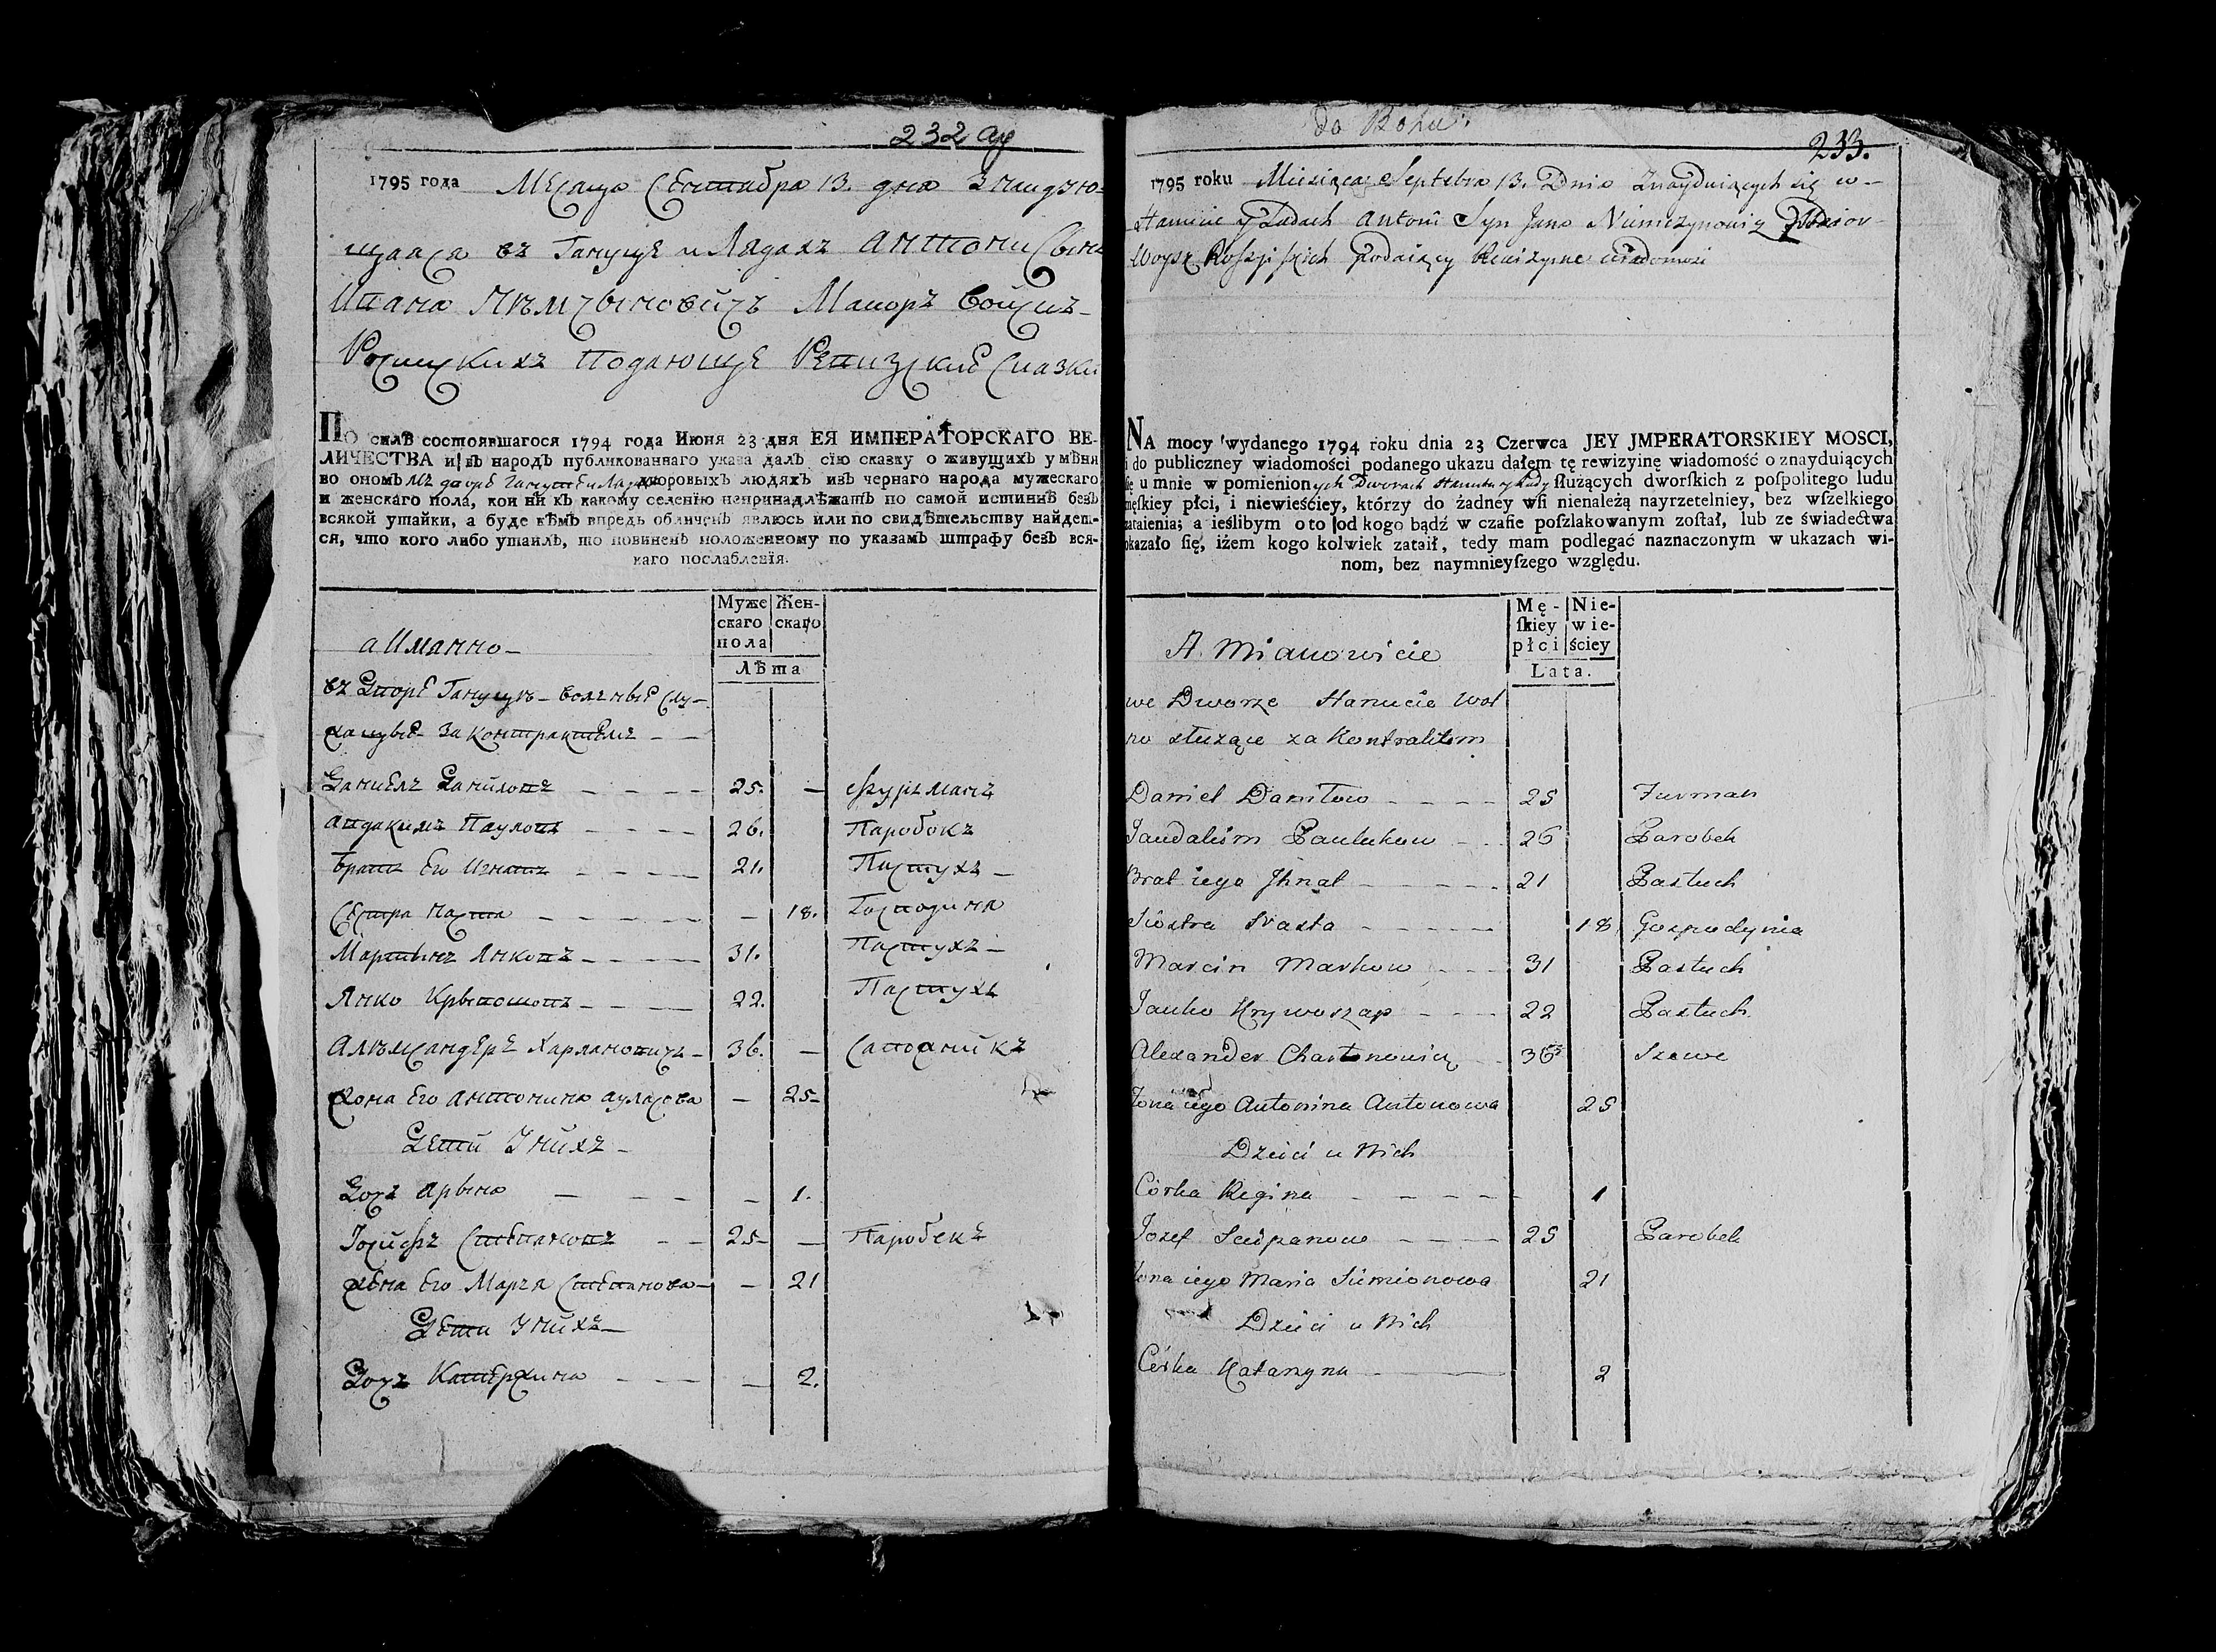 232
1795 года Месяца Сентабра 13. дня Знайдую-
щаяся въ Гануце и Лядахъ Антони Сынъ
Ивана Нѣмцыновичъ Маиоръ Войскъ-
Росийскихъ Подающе Ревизские Сказки
ПО силѣ состоявшагося 1794 года Июня 23 дня ЕЯ ИМПЕРАТОРСКАГО ВЕ-
ЛИЧЕСТВА и въ народъ публикованнаго указа далъ сїю сказку о живущихъ у мѣня
во ономъ дворовыхъ людяхъ изъ чернаго народа мужескаго
и женскаго пола, кои ни къ какому селенїю непринадлѣжатъ по самой истиннѣ безъ
всякой утайки, а буде кѣмъ впредь обличенъ явлюсь или по свидѣтельству найдет-
ся, что кого либо утаилъ, то повиненъ положенному по указамъ штрафу безъ вся-
каго послабленїя.
Муже скаго пола Жен- скаго
аИманно-
Лѣта
въ Дворе Гануцъ- волные слу-
жацые За Контрактемъ - -
Даниелъ Даниловъ - - - - 25. — Фурманъ
Авдакимъ Пауловъ - - - - 26. Паробокъ
Братъ Его Игнатъ - - - - 21. Пастухъ -
Сестра Наста - - - - - 18. Господиня
Мартынъ Янковъ - - - - 31. Пастухъ -
Янко Крывошопъ - - - - 22. Пастухъ
Алѣксандеръ Харлановичъ - 36. — Сапожникъ
Жона Его Антонина - 25-
Дети Унихъ -
Доч Арына — - - - 1.
Иосифъ Степановъ - - 25- — Паробекъ
Жена Его Маря Степанова - - 21
Дети Унихъ -
Доч Катержина - - - — 2.
do Bohu
233.
1795 roku Miesiąca Septebra 13. Dnia Znayduiących się w-
Hanucie y Ladach Antoni Syn Jana Niemczynowicz Maior
Woysk Roſsyiſkich Podaiący Rewizyine wiadomosci
NA mocy wydanego 1794 roku dnia 23 Czerwca JEY JMPERATORSKIEY MOSCI,
i do publiczney wiadomości podanego ukazu dałem tę rewizyinę wiadomość o znayduiących
ſię u mnie w pomienionych Dworach Hanucie y Lady ſłużących dworſkich z poſpolitego ludu
męſkiey płci, i niewieściey, którzy do żadney wſi nienależą nayrzetelniey, bez wſzelkiego
zataienia; a ieſlibym o to od kogo bądź w czaſie poſzlakowanym zoſtał, lub ze świadectwa
okazało ſię, iżem kogo kolwiek zataił, tedy mam podlegać naznaczonym w ukazach wi-
nom, bez naymnieyſzego względu.
Mę- ſkiey płci Nie- wie- ściey
A. Mianowicie
Lata.
we Dworze Hanucie wol
no służące za Kontraktem
Daniel Daniłow - - - - 25 Furman
Jaudakim Paulukow - - 26 Parobek
Brat iego Jhnat - - - - - 21 Pastuch
Siostra Nasta - - - - - 18 Gospodynia
Marcin Markow - - - 31 Pastuch
Janko Krywoszap - - - 22 Pastuch
Alexander Charłonowicz - 36 Szewc
Żona iego Antonina Antonowa 25
Dzieci u Nich
Córka Regina - - - - - 1
Jozef Sciepanow - - - - 25 Parobek
Żona iego Maria Siemionowa 21
Dzieci u Nich
Córka Katarzyna - - - 2